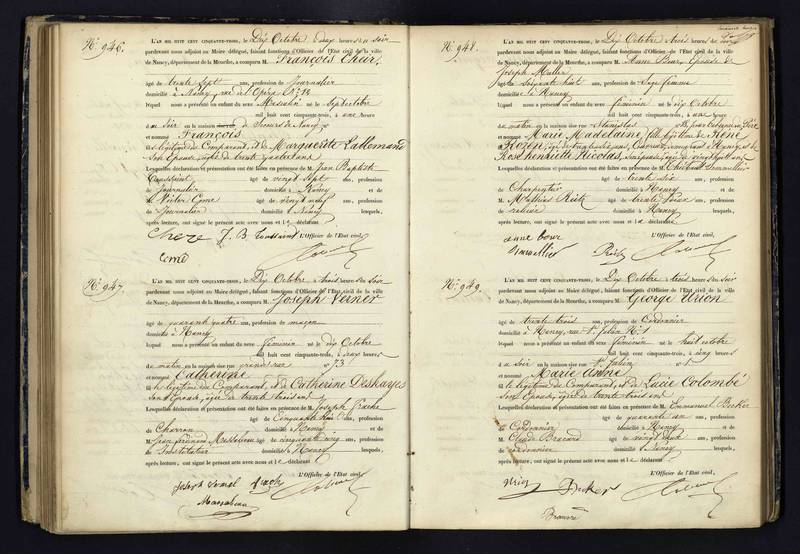 N.° 946.
L'AN MIL HUIT CENT CINQUANTE-TROIS, le Dix Octobre à deux heures du soir
pardevant nous adjoint au Maire délégué, faisant fonctions d'Officier de l'Etat civil de la ville
de Nancy, département de la Meurthe, a comparu M. François
âgé de trente sept ans, profession de Journalier
domicilié à Nancy, rue de l'Opéra N.°
lequel nous a présenté un enfant du sexe Masculin né le sept octobre
mil huit cent cinquante-trois, à une heure
du soir en la maison de Secours de Nancy
et nommé François
fils légitime du Comparant, et de Marguerite Lallemand
son Epouse, âgée de trente ans
Lesquelles déclaration et présentation ont été faites en présence de M. Jean Baptiste
Toussaint âgé de vingt sept ans, profession
de Journalier domicilié à Nancy et de
M. âgé de vingt neuf ans, profession
de Journalier domicilié à Nancy lesquels,
après lecture, ont signé le présent acte avec nous et le déclarant
J. B. Toussaint L'Officier de l'Etat civil,
N.° 947.
L'AN MIL HUIT CENT CINQUANTE-TROIS, le Dix Octobre à trois heures du soir
pardevant nous adjoint au Maire délégué, faisant fonctions d'Officier de l'Etat civil de la ville
de Nancy, département de la Meurthe, a comparu M. Joseph
âgé de quarante quatre ans, profession de maçon
domicilié à Nancy
lequel nous a présenté un enfant du sexe féminin né le dix Octobre
mil huit cent cinquante-trois, à deux heures
du matin en la maison sise rue grande rue n° 73
et nommé Catherine
fille légitime du Comparant, et de Catherine Deshayes
son Epouse, âgée de trente trois ans
Lesquelles déclaration et présentation ont été faites en présence de M. Joseph
âgé de Cinquante ans, profession
de Charron domicilié à Nancy et de
M. Jean François âgé de cinquante cinq ans, profession
d'Instituteur domicilié à Nancy lesquels,
après lecture, ont signé le présent acte avec nous et le déclarant
L'Officier de l'Etat civil,
N.° 948.
L'AN MIL HUIT CENT CINQUANTE-TROIS, le Dix Octobre à trois heures du soir
pardevant nous adjoint au Maire délégué, faisant fonctions d'Officier de l'Etat civil de la ville
de Nancy, département de la Meurthe, a comparu M. Anne Bour, Epouse de
Joseph Muller
âgée de soixante huit ans, profession de Sage femme
domiciliée à Nancy
lequel nous a présenté un enfant du sexe féminin né le dix Octobre
mil huit cent cinquante-trois, à une heure
du matin en la maison rue Stanislas
et nommé Marie Madelaine fille légitime de René
et de
Rose henriette Nicolas, son épouse, âgée de vingt
Lesquelles déclaration et présentation ont été faites en présence de M. Thiébaut
âgé de trente six ans, profession
de Charpentier domicilié à Nancy et de
M. Mathias âgé de trente ans, profession
de relieur domicilié à Nancy lesquels,
après lecture, ont signé le présent acte avec nous et la déclarante
anne bour L'Officier de l'Etat civil,
N.° 949.
L'AN MIL HUIT CENT CINQUANTE-TROIS, le Dix Octobre à trois heures du soir
pardevant nous adjoint au Maire délégué, faisant fonctions d'Officier de l'Etat civil de la ville
de Nancy, département de la Meurthe, a comparu M. George Urion
âgé de trente trois ans, profession de Cordonnier
domicilié à Nancy, rue St Julien N.° 1
lequel nous a présenté un enfant du sexe féminin né le huit octobre
mil huit cent cinquante-trois, à cinq heures
du soir en la maison sise rue St Julien n°
et nommé Marie Anne
fille légitime du Comparant, et de Lucie Colombé
son Epouse, âgée de trente trois ans
Lesquelles déclaration et présentation ont été faites en présence de M. Emmanuel Becker
âgé de quarante un ans, profession
de Cordonnier domicilié à Nancy et de
M. Claude âgé de vingt deux ans, profession
de cordonnier domicilié à Nancy lesquels,
après lecture, ont signé le présent acte avec nous et le déclarant
L'Officier de l'Etat civil,
Urion Becker